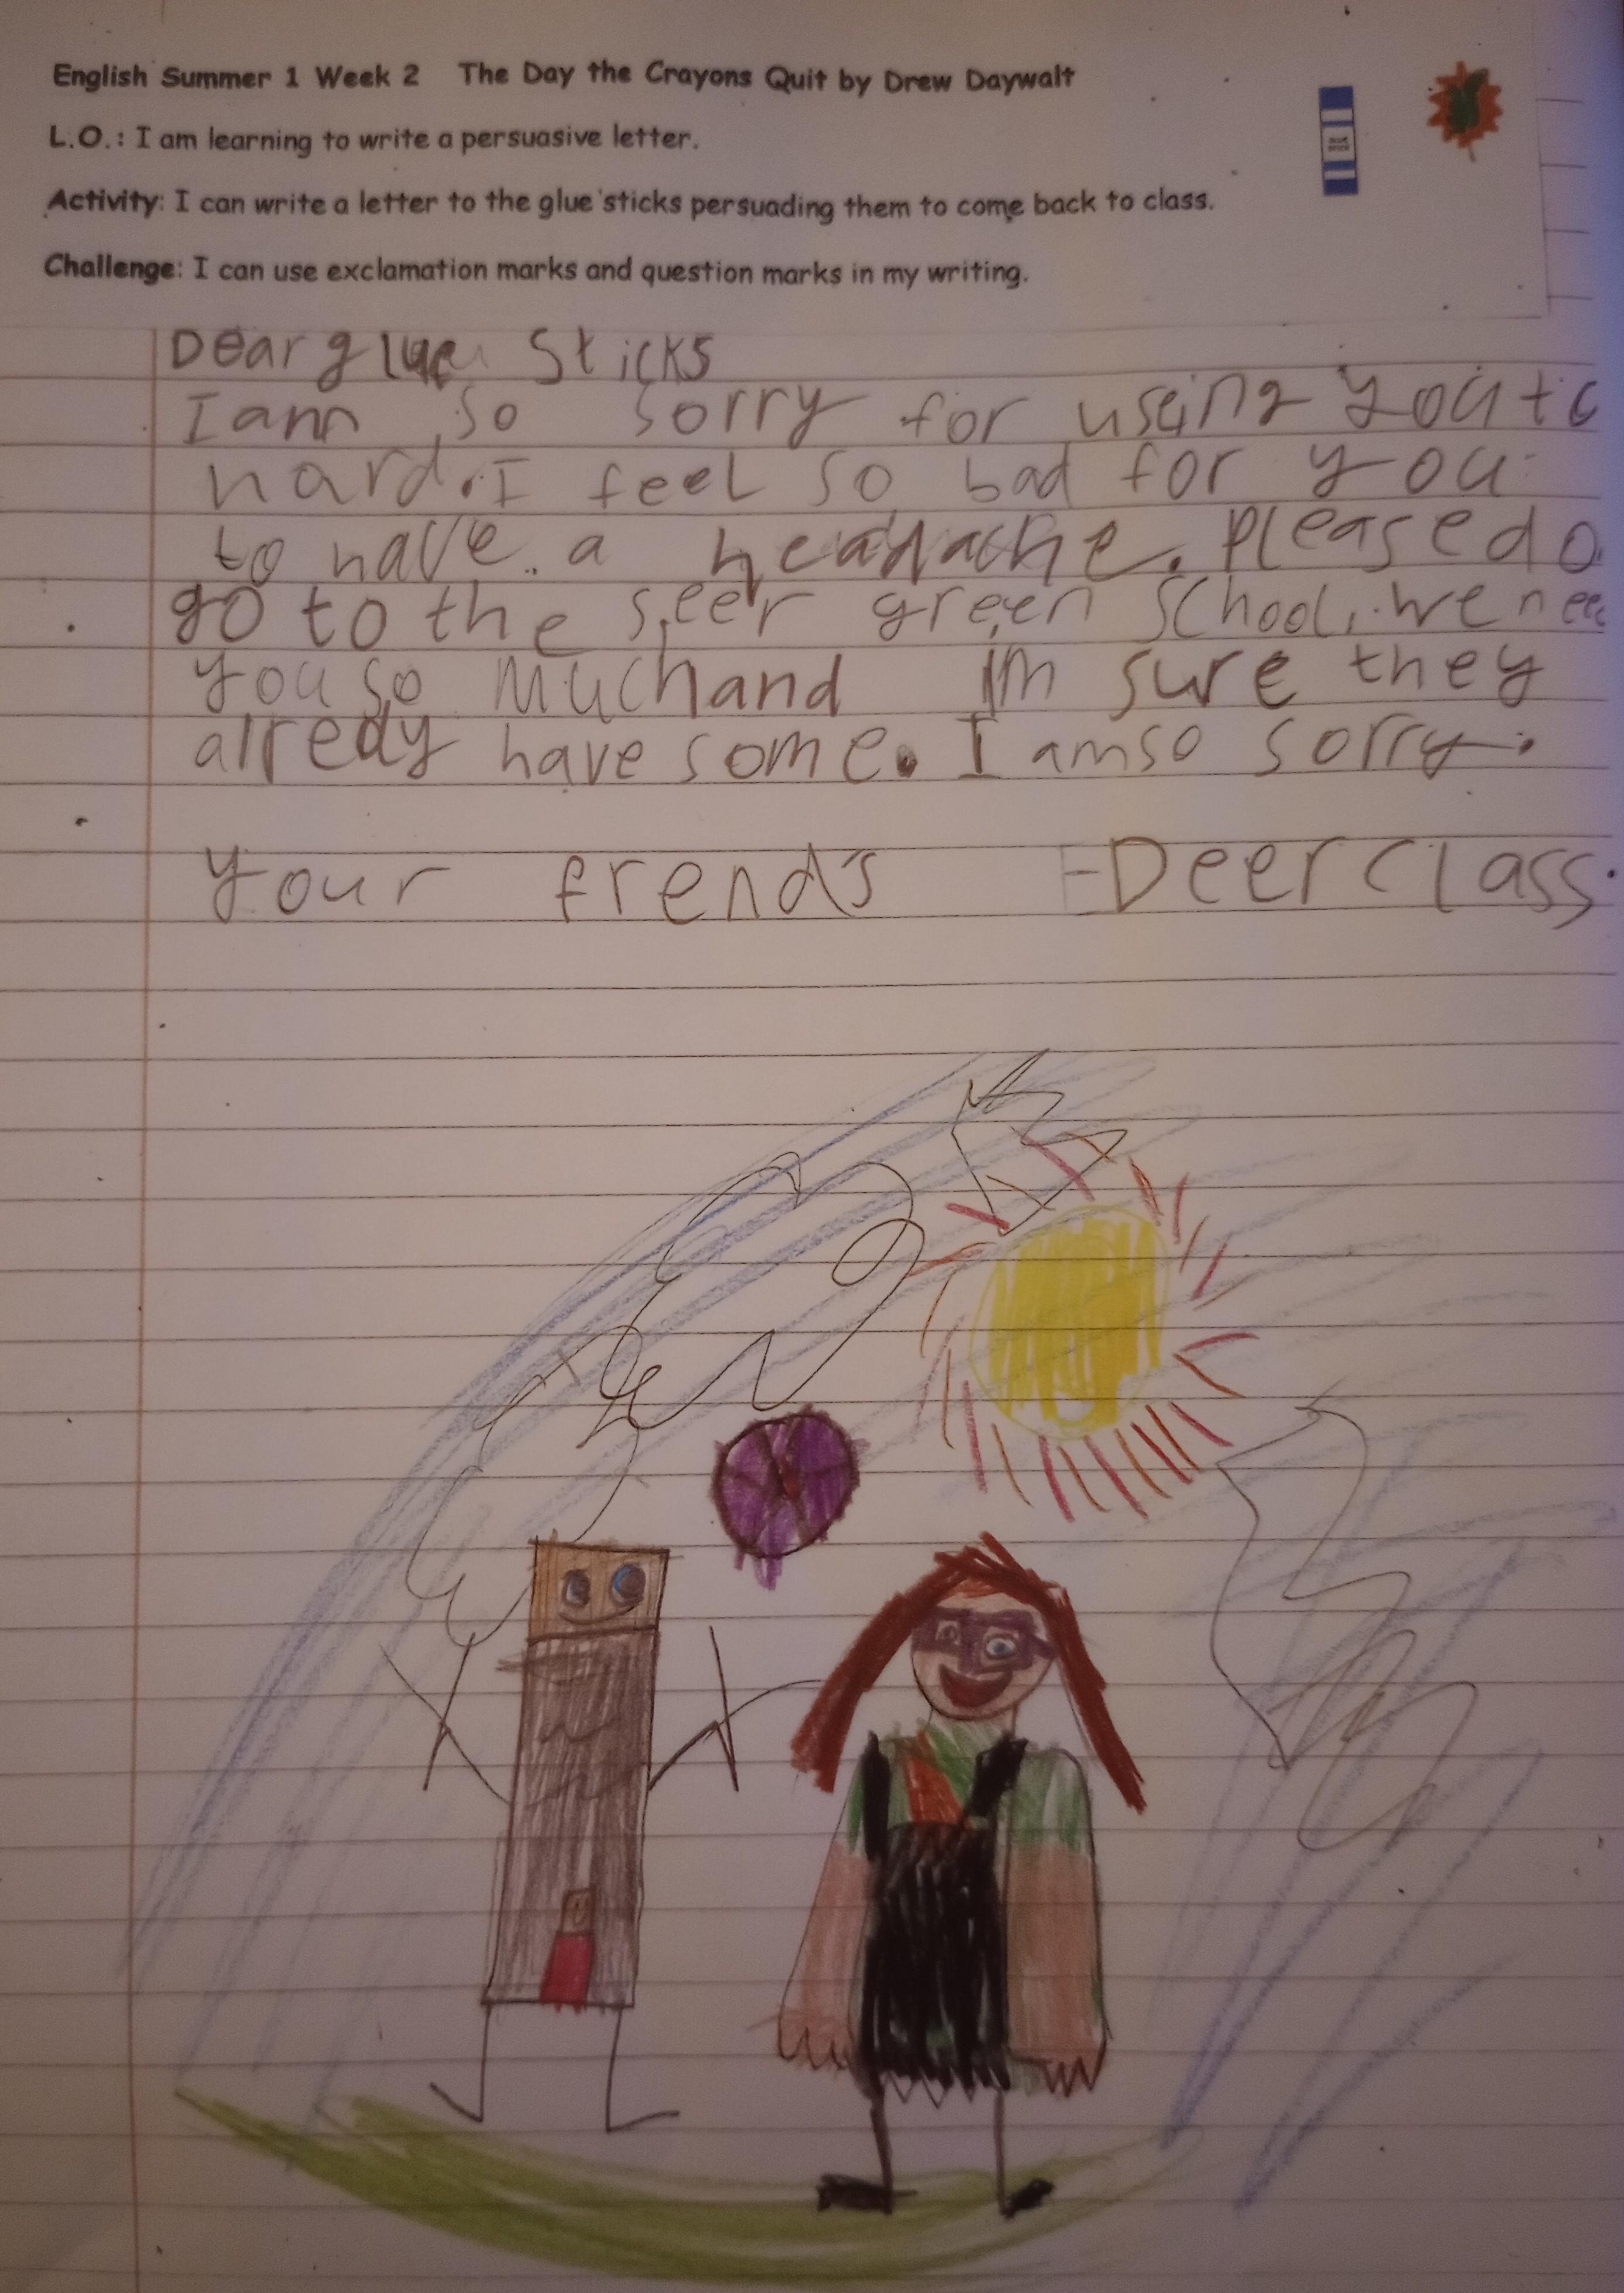 English Summer 1 Week 2 The Day the Crayons Quit by Drew Daywalt
L.O.: I am learning to write a persuasive letter.
Activity: I can write a letter to the glue sticks persuading them to come back to class.
Challenge: I can use exclamation marks and question marks in my writing.
Dear glue Sticks
I am so sorry for using you to
hard. I feel so bad for you
to have a headache. Please do
go to the seer green School, we need
you so Much and im sure they
alredy have some. I am so sorry.
your frends -Deer Class.